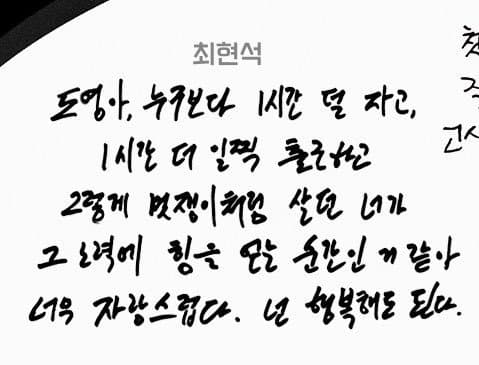 최현석
도영아, 누구보다 1시간 덜 자고,
1시간 더 일찍 출근하고
그렇게 멋쟁이처럼 살던 너가
그 노력에 힘을 얻는 순간인 거 같아
너무 자랑스럽다. 넌 행복해도 된다.
첫
고사